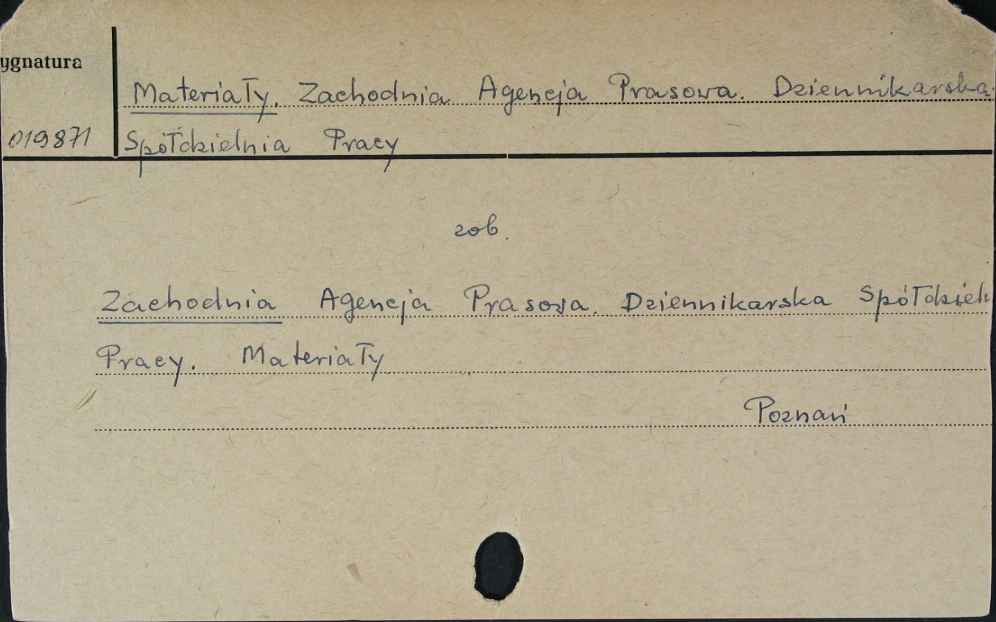 ygnatura
Materiały. Zachodnia Agencja Prasowa. Dziennikarska
019871 Spółdzielnia Pracy
zob.
Zachodnia Agencja Prasowa. Dziennikarska Spółdzieln
Pracy. Materiały
Poznań